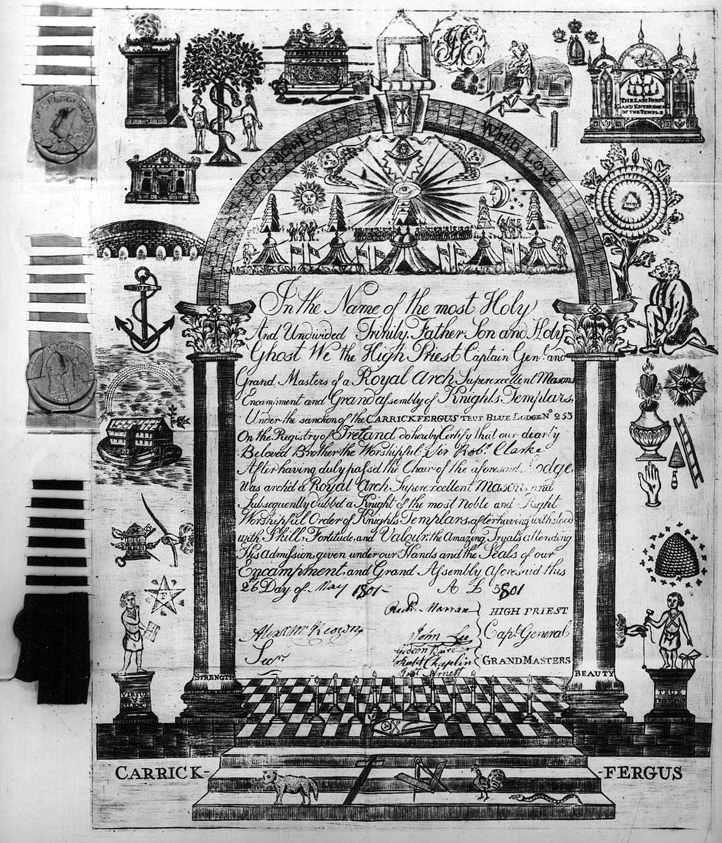 THE EAST PORCH
AND ENTERANCE
OF THE TEMPLE
With Love
In the Name of the most Holy
And Undivided Trinity, Father Son and Holy
Ghost We the High Priest Captain Genl. and
Grand Masters of a Royal Arch Superexcellent Masons
Encampment and Grand Assembly of Knights Templars,
Under the sanction of the CARRICKFERGUS TRUE BLUE LODGE No. 253
On the Registry of Ireland, do hereby Certify that our dearly
Beloved Brother the Worshipful Sir Robt. Clarke
After having duly passd the Chair of the aforesaid Lodge
Was archd a Royal Arch Superexcellent Mason, and
Subsequently dubbd a Knight of the most Noble and Right
Worshipful Order of Knights Templars after having withstood
with Skill, Fortitude, and Valour, the Amazing Tryals attending
This Admission, given under our Hands and the Seals of our
Encampment, and Grand Assembly Aforesaid this
26 Day of May 1801 A L 5801
HIGH PRIEST
Alexr. McKeown
John Lee
Capt. General
Secr.
GRAND MASTERS
STRENGTH
BEAUTY
VIRTUE
CARRICK-
-FERGUS